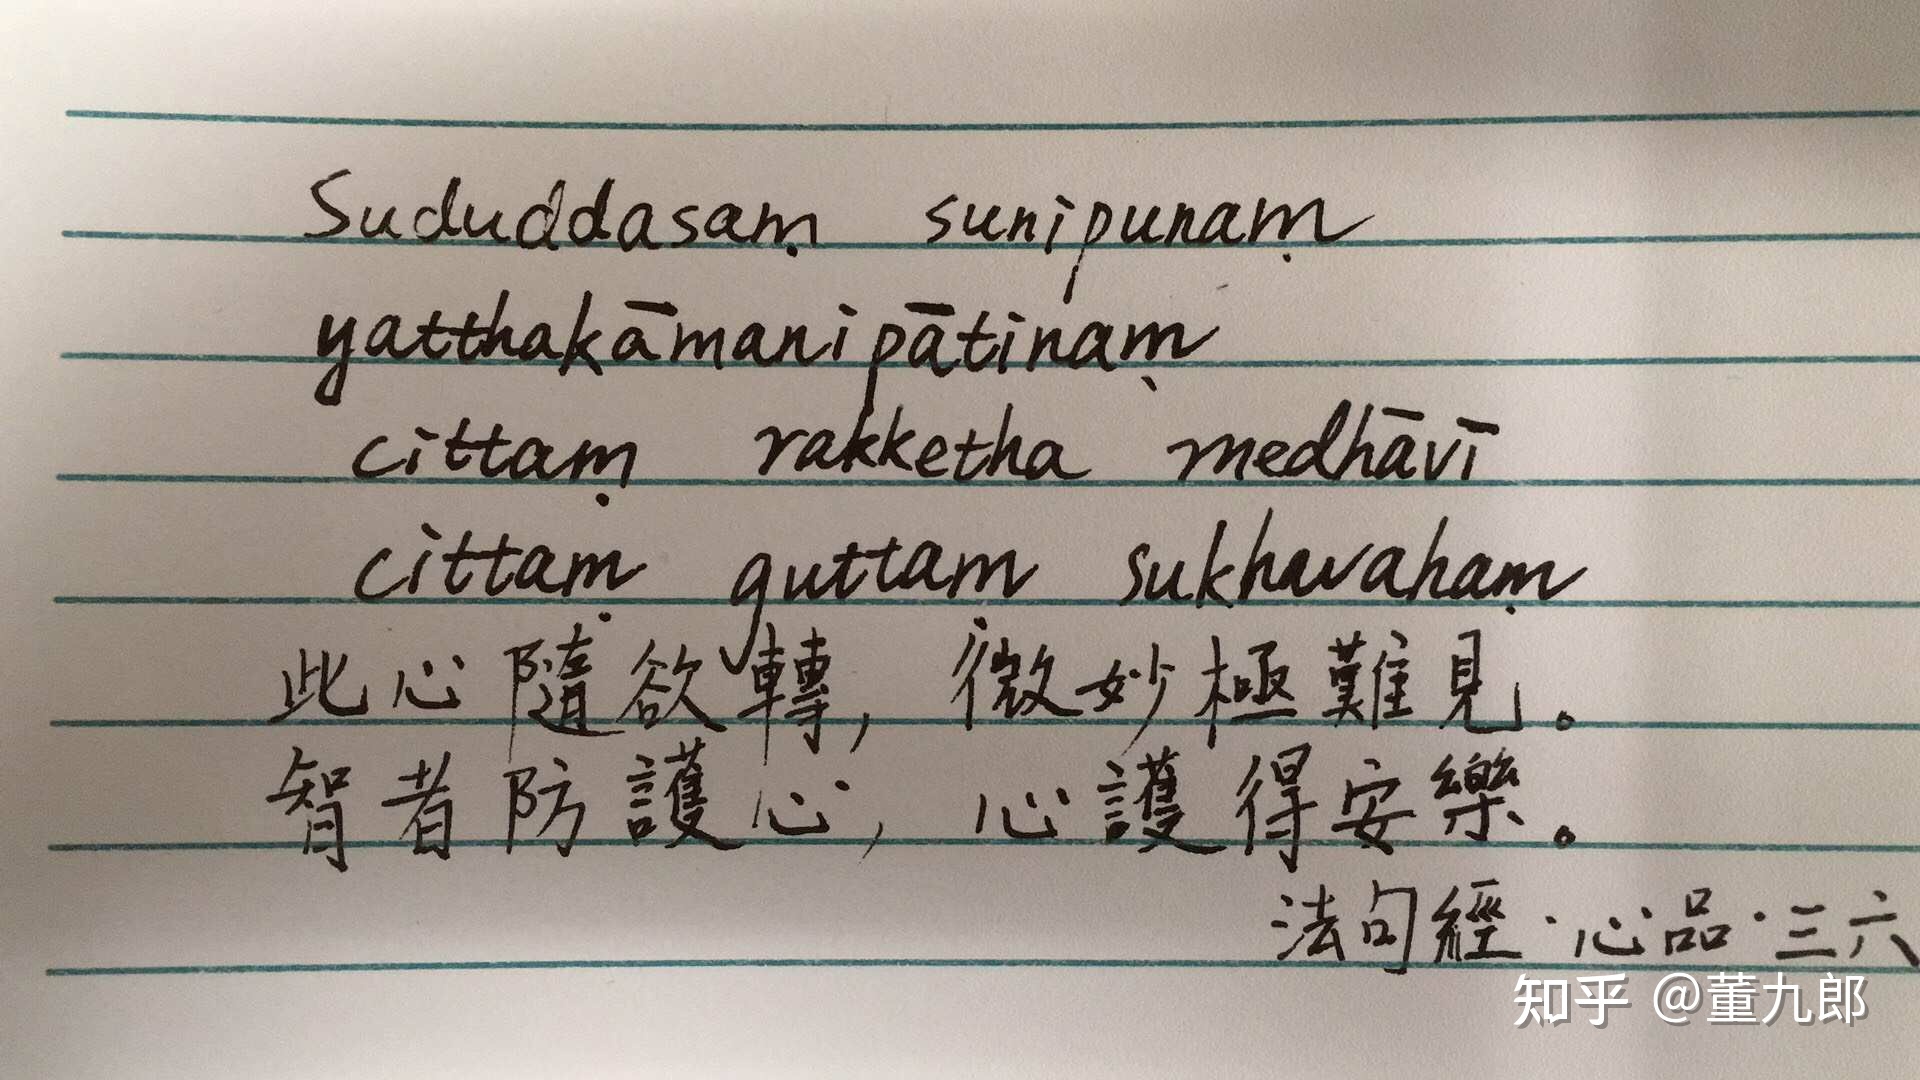 Sududdasaṃ sunipunaṃ
yatthakāmanipātinaṃ
cittaṃ rakketha medhāvī
cittaṃ guttaṃ sukhavahaṃ
此心隨欲轉,微妙極難見。
智者防護心,心護得安樂。
法句經·心品·三六
知乎 @董九郎